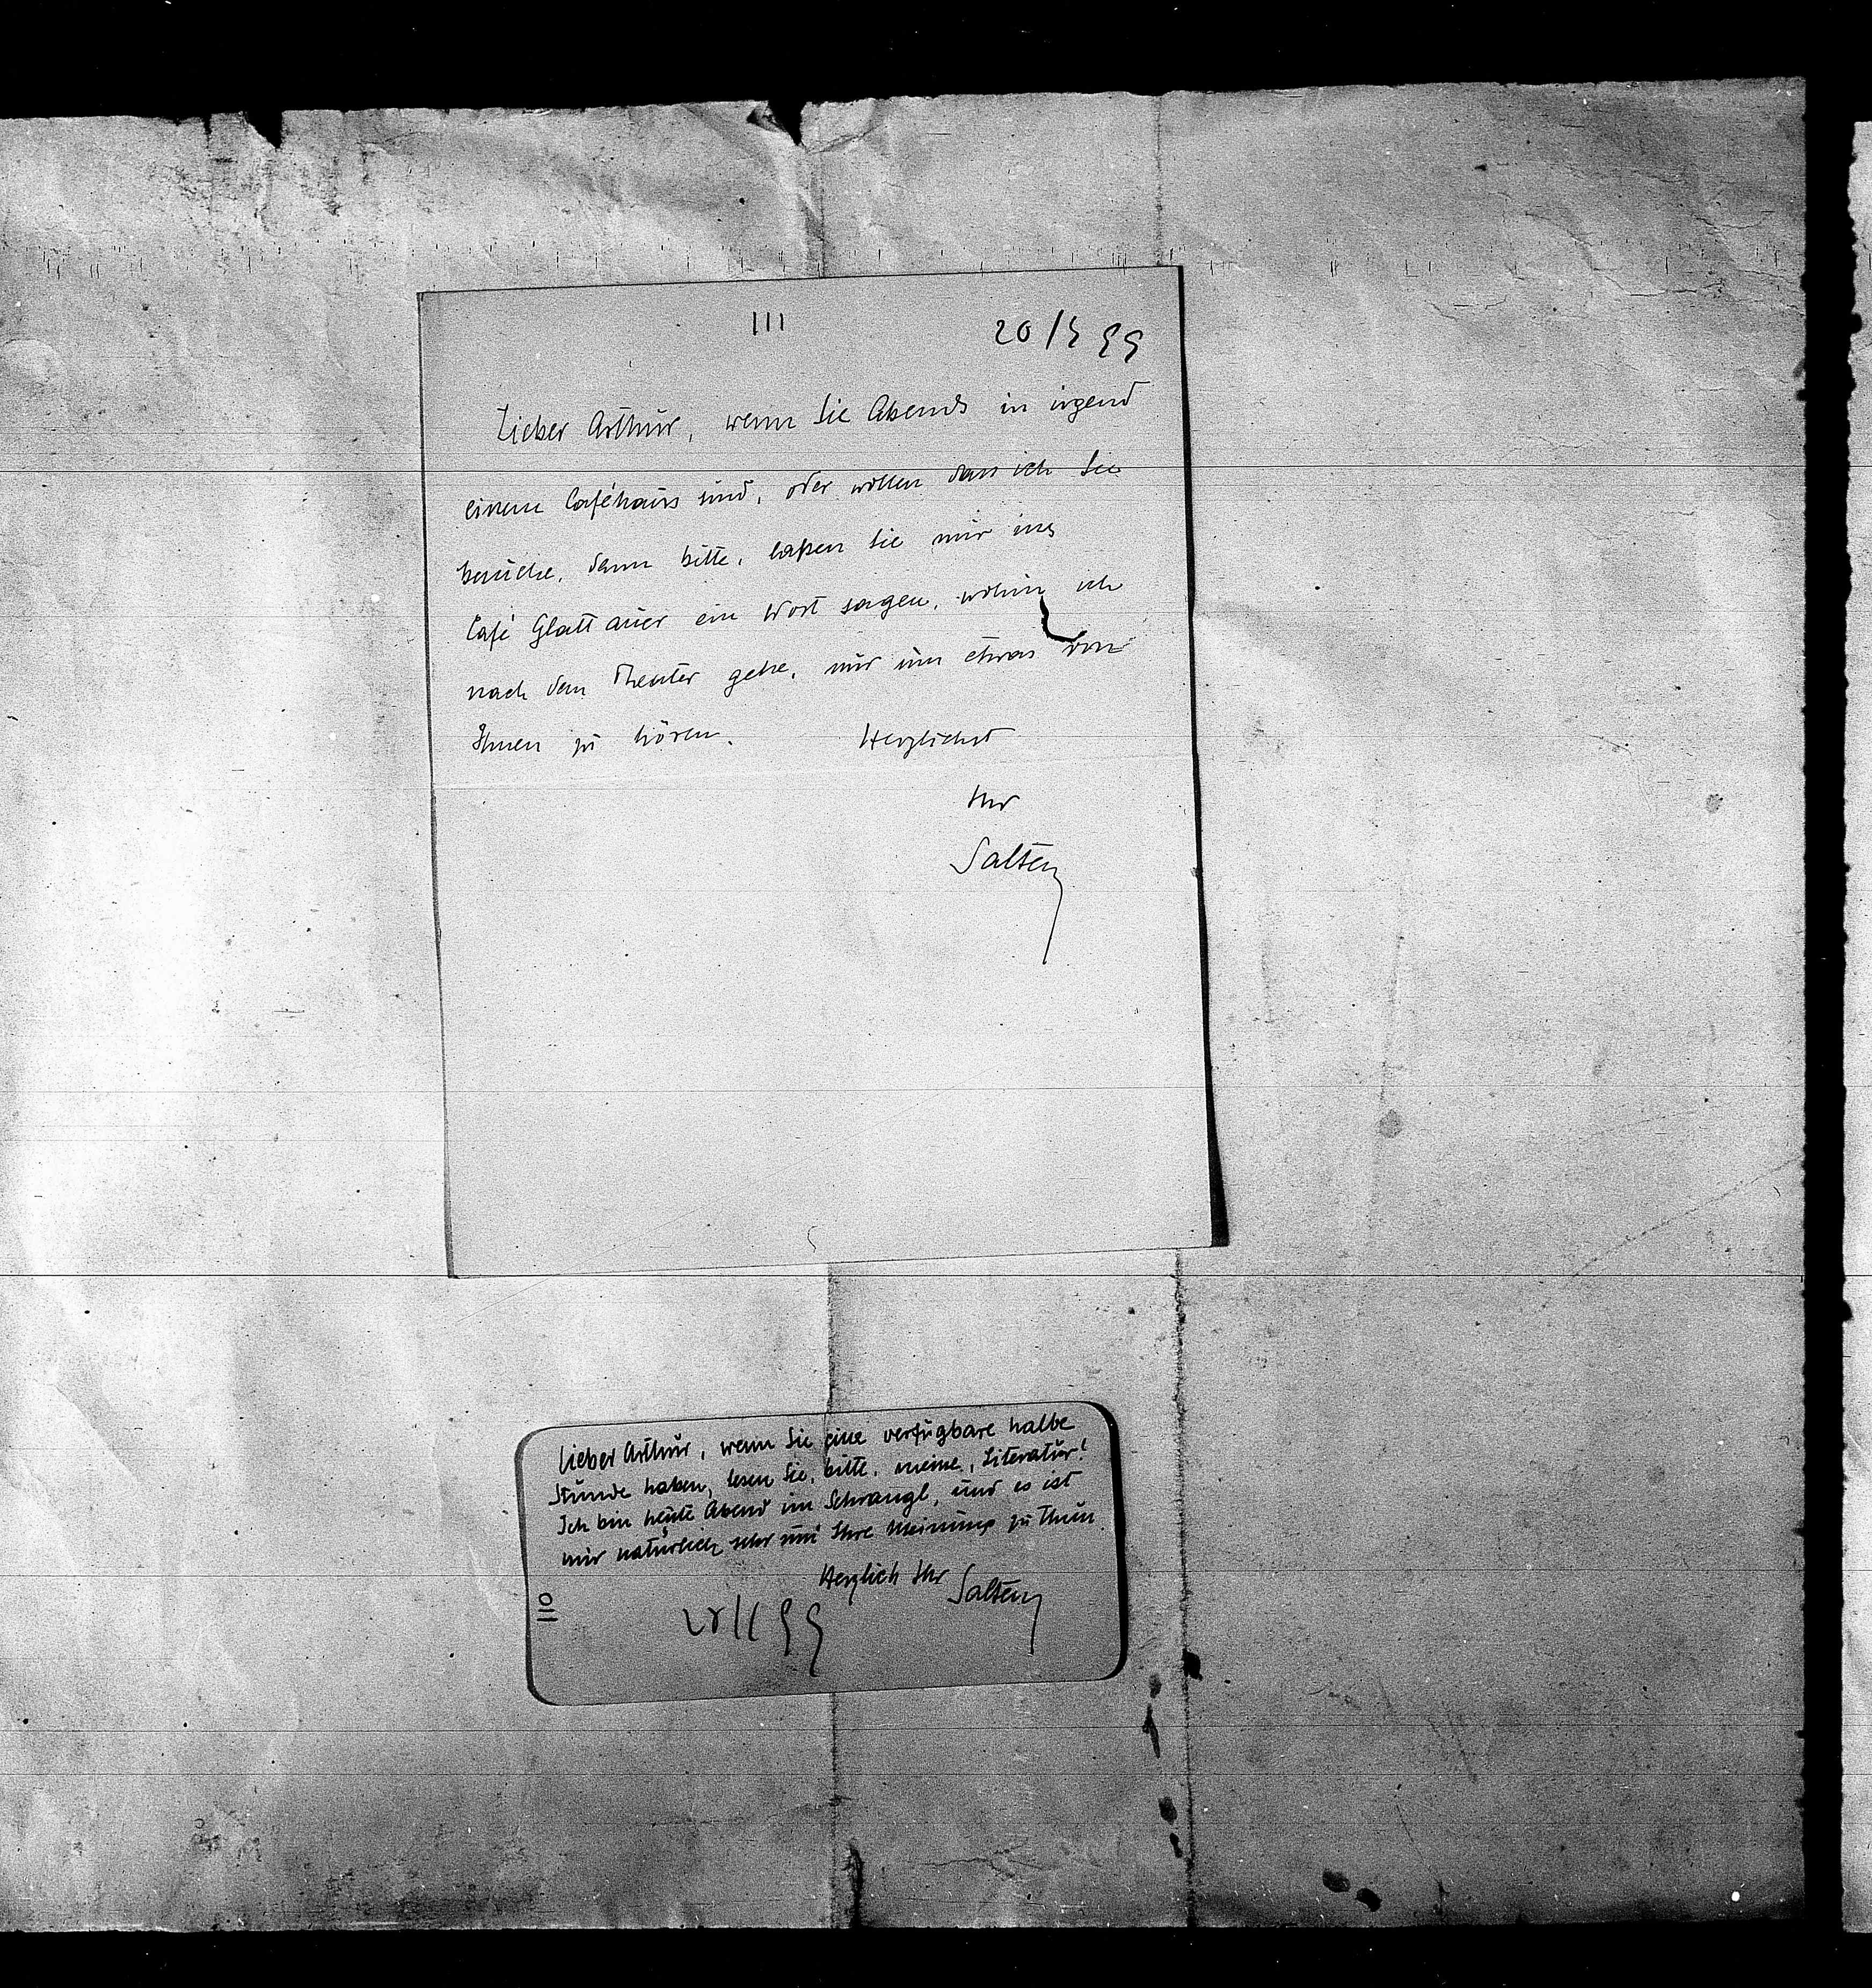 111
20/3 99
Lieber Arthur, wenn Sie Abends in irgend
einem Caféhaus sind, oder wollen dass ich Sie
besuche, dann bitte, laßen Sie mir ins
Café Glattauer ein Wort sagen, wohin ich
nach dem Theater gehe, nur um etwas von
Ihnen zu hören. Herzlichst
Ihr
Salten
Lieber Arthur, wenn Sie eine verfügbare halbe
Stunde haben, lesen Sie, bitte, meine „Literatur!
Ich bin heute Abend im Schrangl, und es ist
mir natürlich sehr um Ihre Meinung zu thun.
Herzlich Ihr Salten
110
99